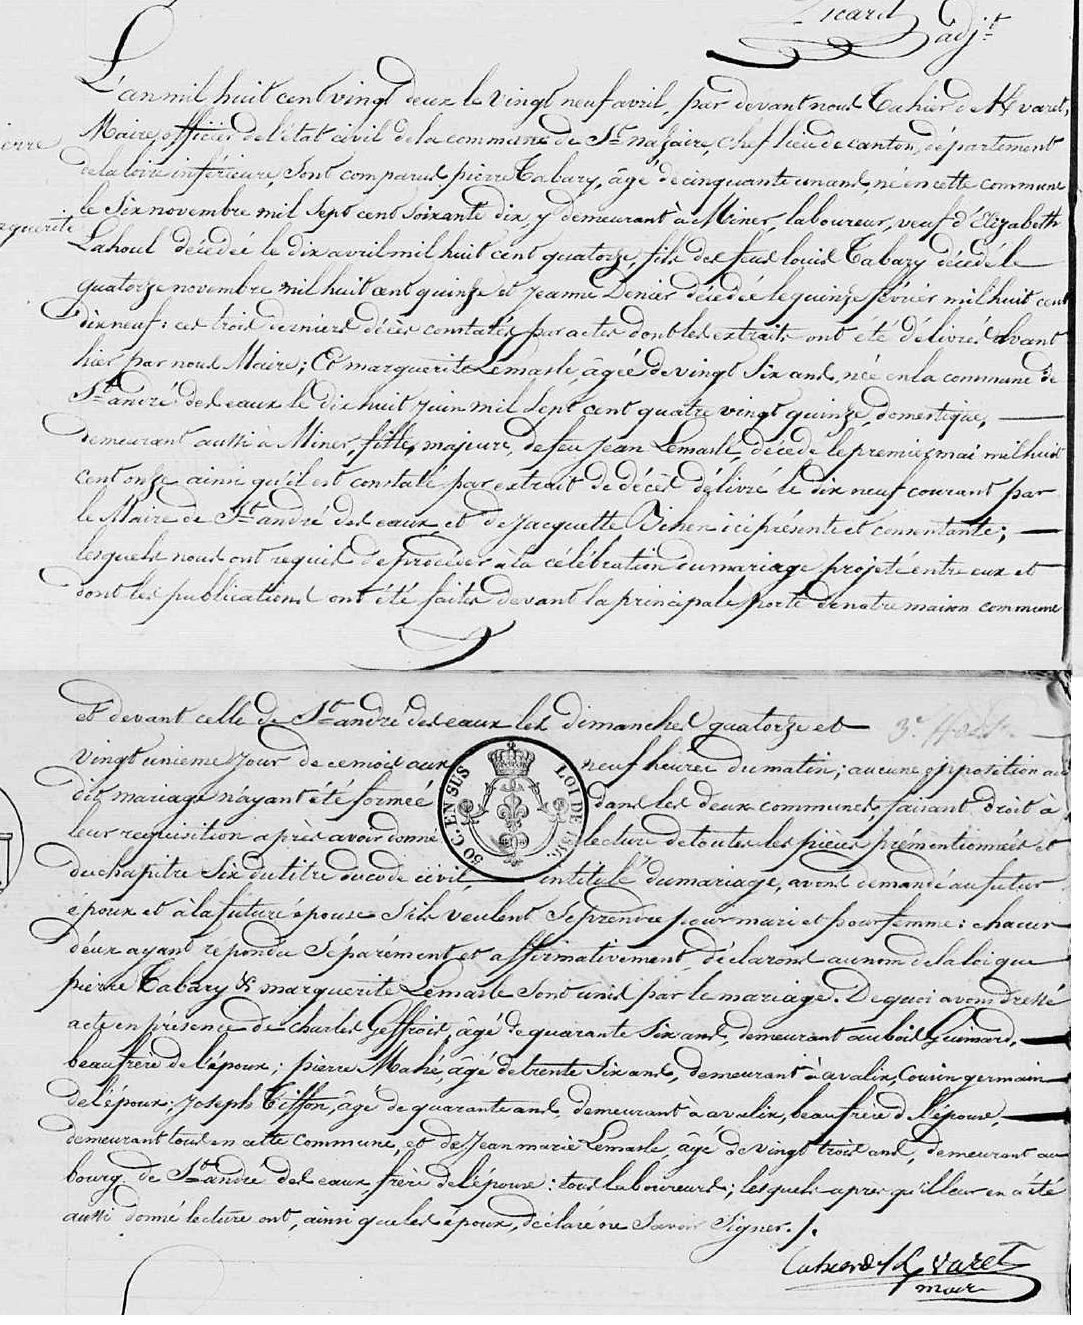 Picard
adj.t
L'an mil huit cent vingt deux le vingt neuf avril, par devant nous Cahier de
Maire, officier de l'état civil de la commune de St nazaire, chef lieu de canton, département
de la loire inférieure, sont comparus pierre Tabary, âgé de cinquante un ans, né en cette commune
le six novembre mil sept cent soixante dix, y demeurant à Miner, laboureur, veuf d'Elizabeth
Lahoul décédée le dix avril mil huit cent quatorze, fils des feus louis Tabary décédé le
quatorze novembre mil huit cent quinze et Jeanne Denier décédée le quinze février mil huit cent
dix neuf: ces trois derniers décès constatés par actes dont les extraits ont été délivrés avant
hier par nous Maire; Et marguerite Lemasle, âgée de vingt six ans, née en la commune de
St andré des eaux le dix huit juin mil sept cent quatre vingt quinze, domestique,
demeurant aussi à Miner, fille, majure, de feu Jean Lemasle, décédé le premier mai mil huit
cent onze ainsi qu'il est constaté par extrait de décès délivré le dix neuf courant par
le Maire de St andré des eaux et de Jacquette Bihen ici présente et consentante;
lesquels nous ont requis de procéder à la célébration du mariage projeté entre eux et
dont les publications ont été faites devant la principale porte de notre maison commune
et devant celle de St andré des eaux les dimanches quatorze et
vingt unieme jour de ce mois aux neuf heures du matin; aucune opposition au
dit mariage n'ayant été formée dans les deux communes, faisant droit à
leur requisition après avoir donné lecture de toutes les pièces prémentionnées et
du chapitre six du titre du code civil, intitulé du mariage, avons demandé au futur
époux et à la future épouse s'ils veulent se prendre pour mari et pour femme: chacun
d'eux ayant répondu séparément et affirmativement, déclarons au nom de la loi que
pierre Tabary & marguerite Lemasle sont unis par le mariage. De quoi avons dressé
acte en présence de charles Geffroit, âgé de quarante six ans, demeurant au bois Guimard,
beau frère de l'époux; pierre Mahé, âgé de trente six ans, demeurant à avalix, cousin germain
de l'époux; Joseph Tiffon, âgé de quarante ans, demeurant à avalix, beau frère de l'épouse,
demeurant tous en cette commune, et de Jean marie Lemasle, âgé de vingt trois ans, demeurant au
bourg de St andré des eaux, frère de l'épouse: tous laboureurs; lesquels après qu'il leur en a été
aussi donné lecture ont, ainsi que les époux, déclaré ne savoir signer./.
maire
50 C. EN SUS
LOI DE 1816.